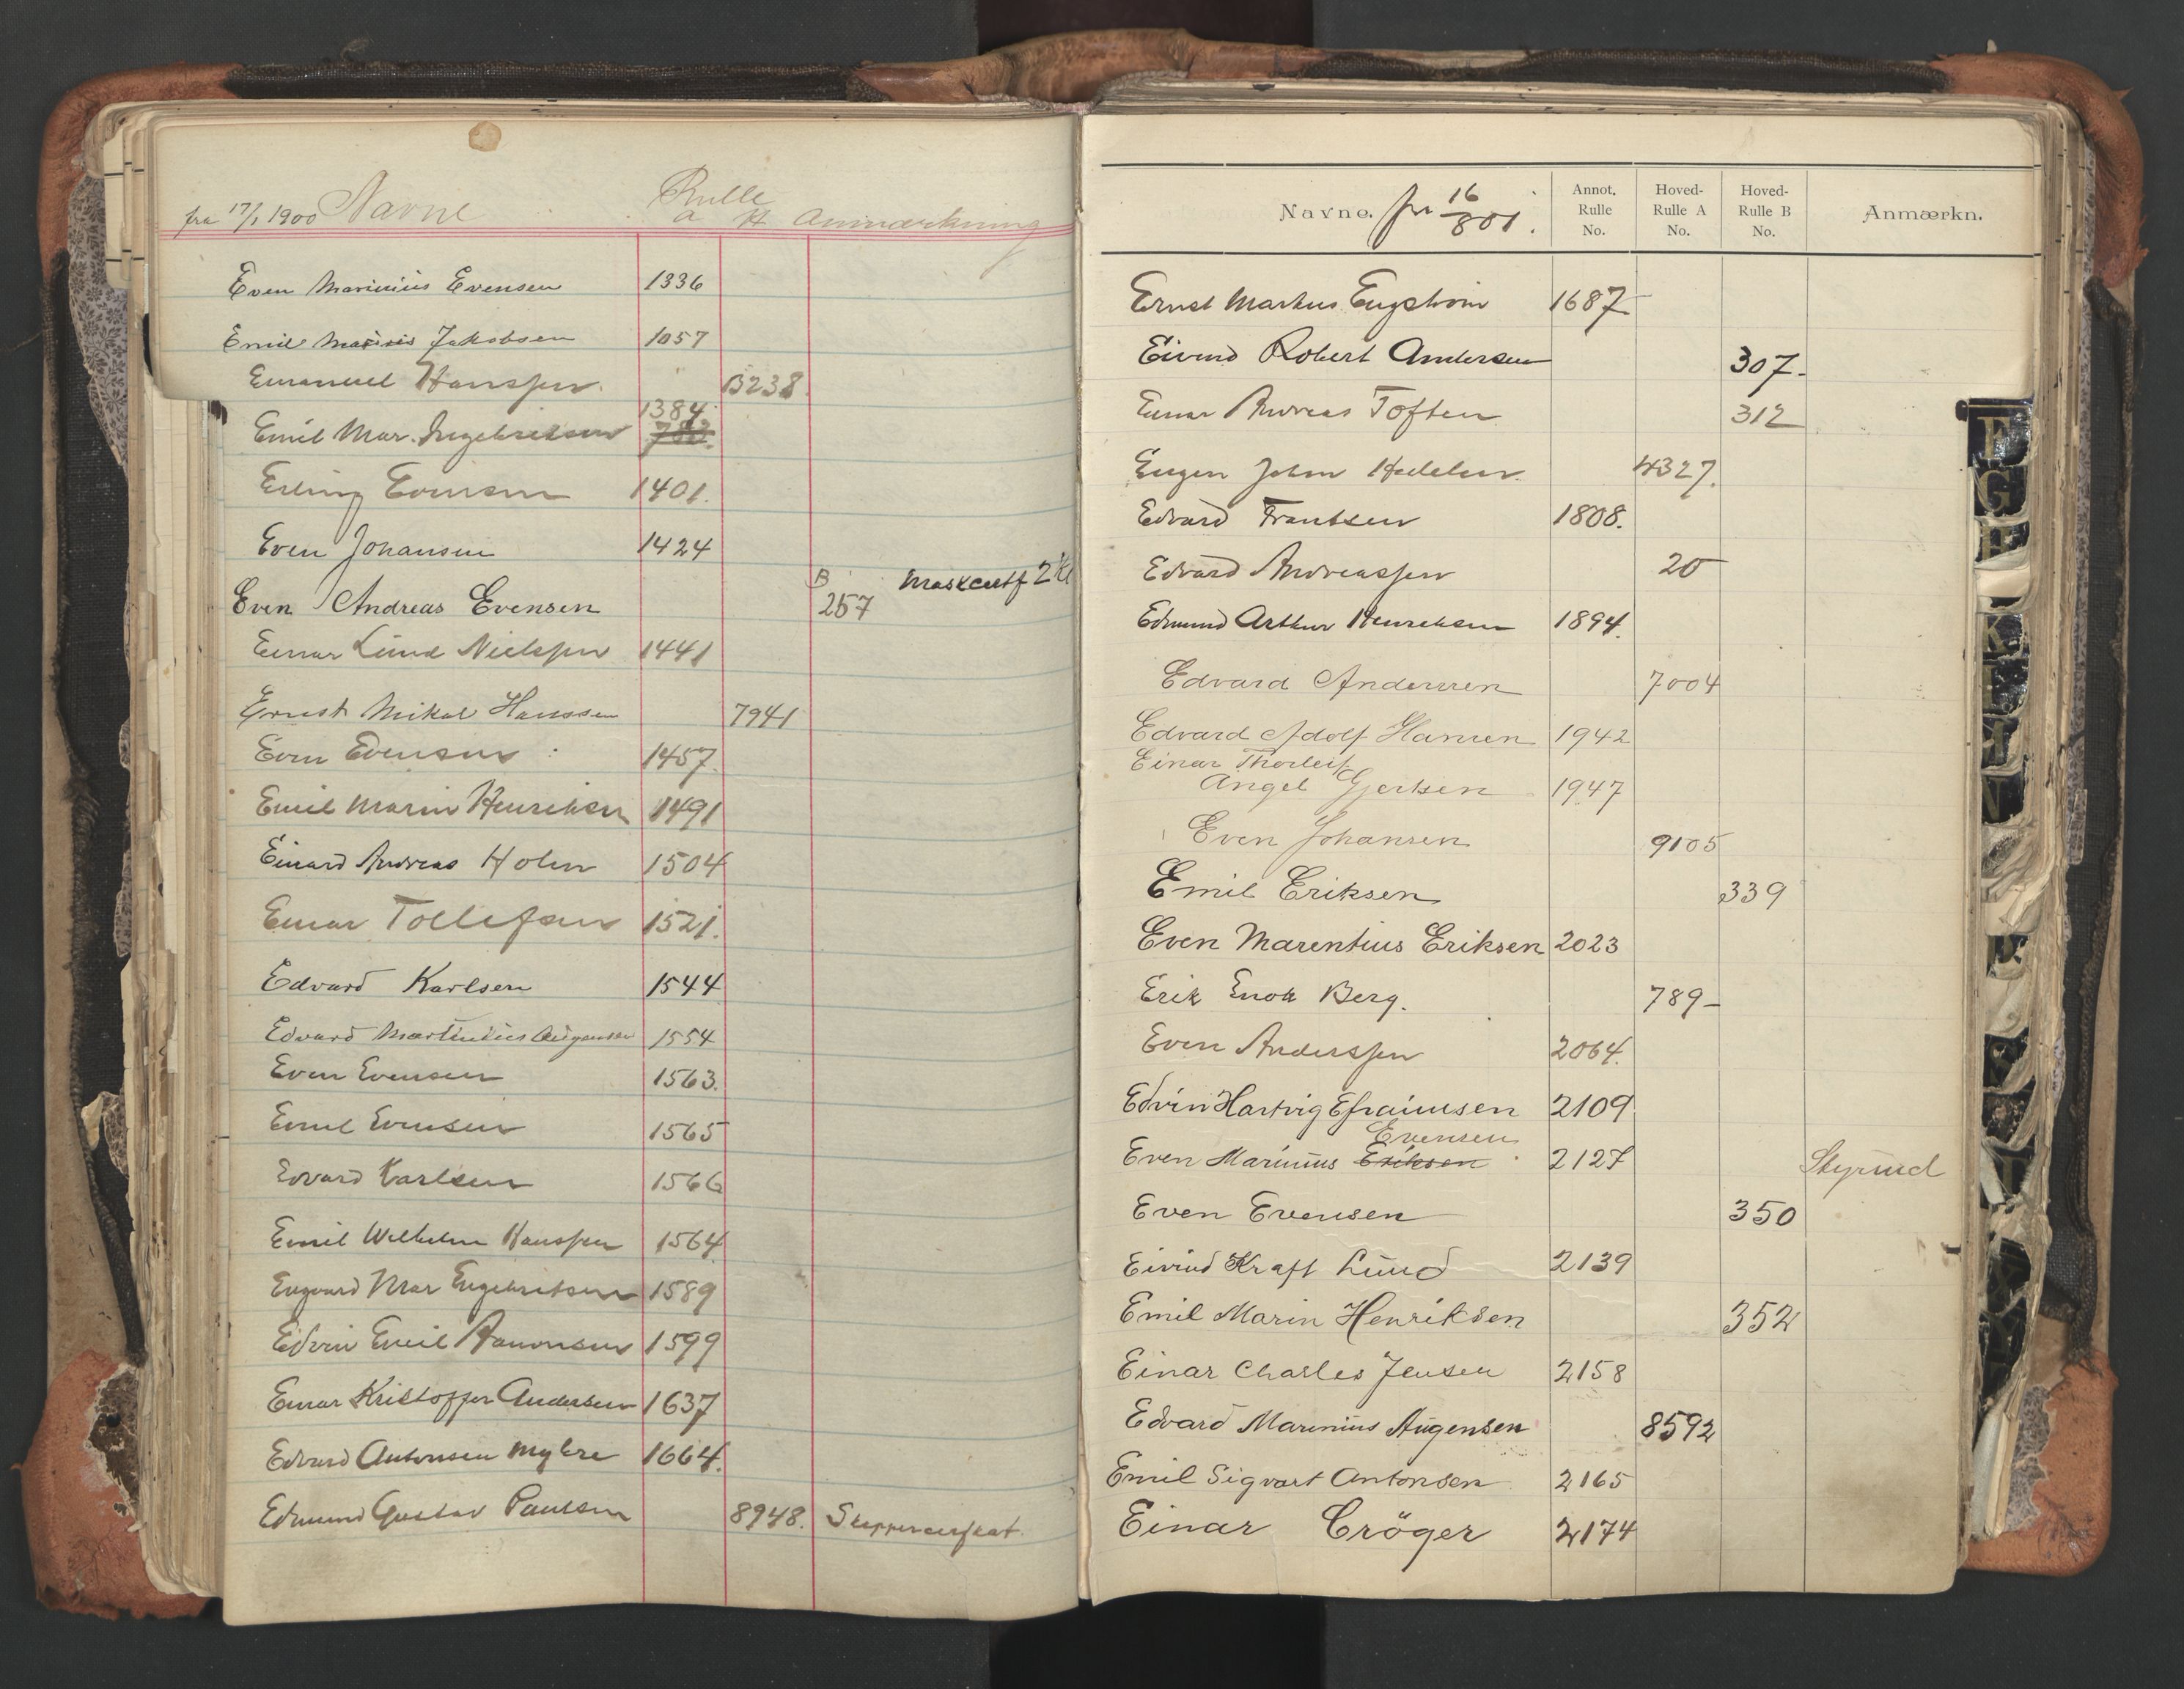 fra 17/1 1900 Navne Rulle
a H Anmærkning
Even Marinius Evensen 1336
Emil Marius Jakobsen 1057
Emanuel Hanssen B238
1384
Emil Mar. Ingebretsen
Erling Evensen 1401.
Even Johansen 1424
B 2 Kl
Even Andreas Evensen 257
Einar Lund Nielssen 1441
Ernst Mikal Hanssen 7941
Even Evensen 1457.
Emil Marin Henriksen 1491
Einard Andreas Holm 1504
Einar Tollefsen 1521.
Edvard Karlsen 1544
Edvard Martinius Augensen 1554
Even Evensen 1563.
Emil Evensen 1565
Edvard Karlsen 1566
Emil Wilhelm Hanssen 1564
Engvard Mar Engebretsen 1589
Edvin Emil Aamonsen 1599
Einar Kristoffer Andersen 1637
Edvard Antonsen Myhre 1664.
Edmund Gustav Paulsen 8948.
Navne. fra 16/8 01.
Annot. Rulle No.
Hoved-Rulle A No.
Hoved-Rulle B No.
Anmærkn.
Ernst Markus Engstrøm 1687
Eivind Robert Andersen 307.
Einar Andreas Toften 312
Eugen John Hedelen 4327.
Edvard Frantsen 1808.
Edvard Andreassen 20
Edmund Arthur Henriksen 1894.
Edvard Anderssen 7004
Edvard Adolf Hansen 1942
Einar Thorleif
Angel Gjertsen 1947
Even Johansen 9105
Emil Eriksen 339
Even Marentius Eriksen 2023
Erik Enok Berg. 789-
Even Anderssen 2064.
Edvin Hartvig Efraimsen 2109
Evensen
Even Marinius Eriksen 2127 Styrmd
Even Evensen 350
Eivind Kraft Lund 2139
Emil Marin Henriksen 352
Einar Charles Jensen 2158
Edvard Marinius Augensen 8592
Emil Sigvart Antonsen 2165
Einar Cröger 2174
F
G
K
N